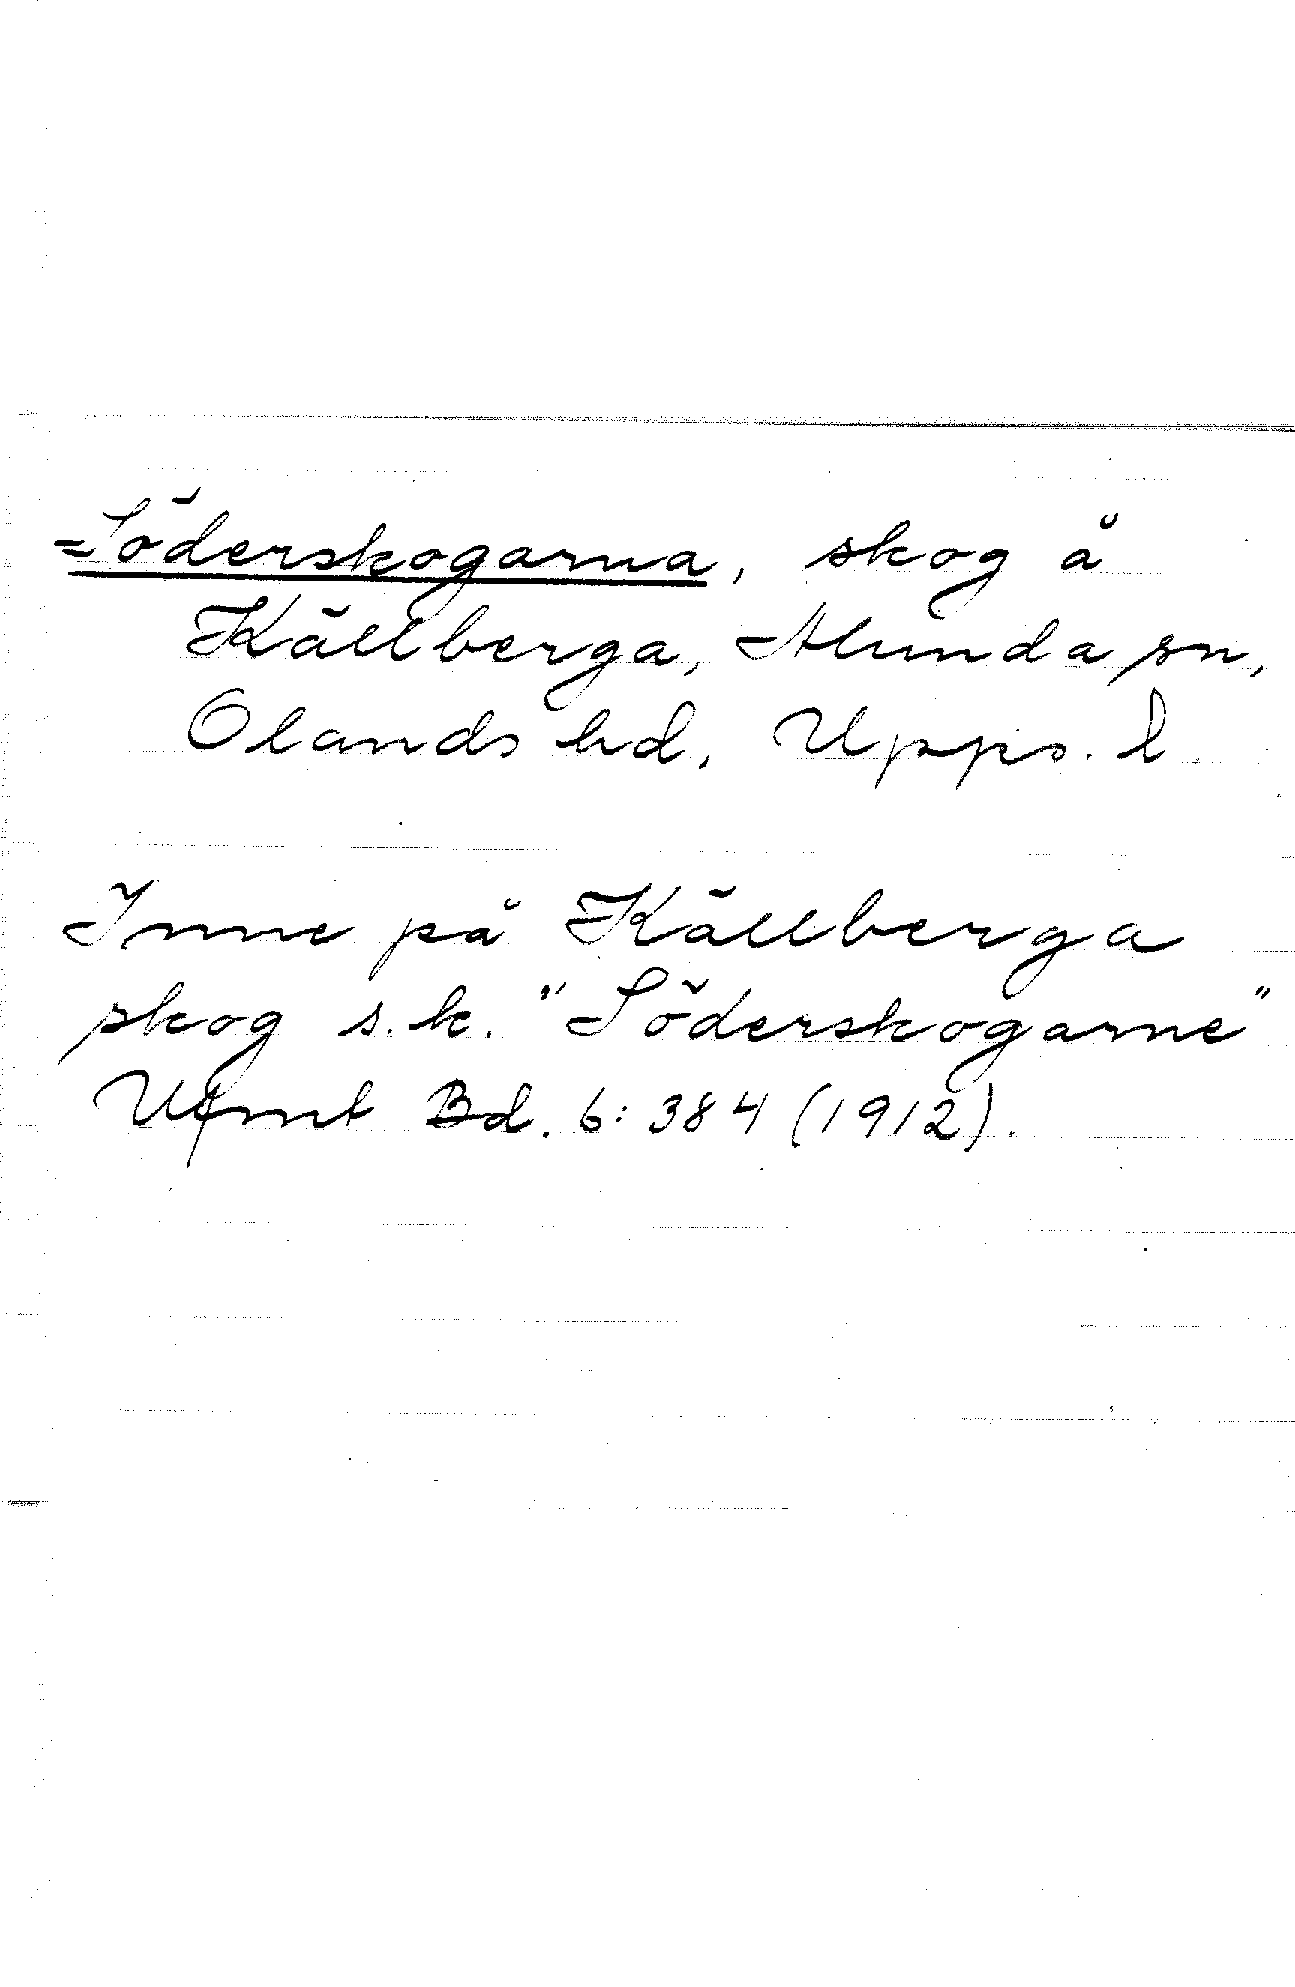 Söderskogarna, skog å
Källberga, Alunda sn,
Olands hd, Upps. l.
Inne på Källberga
skog s.k. "Söderskogarne"
Ufmt Bd. 6:384 (1912).